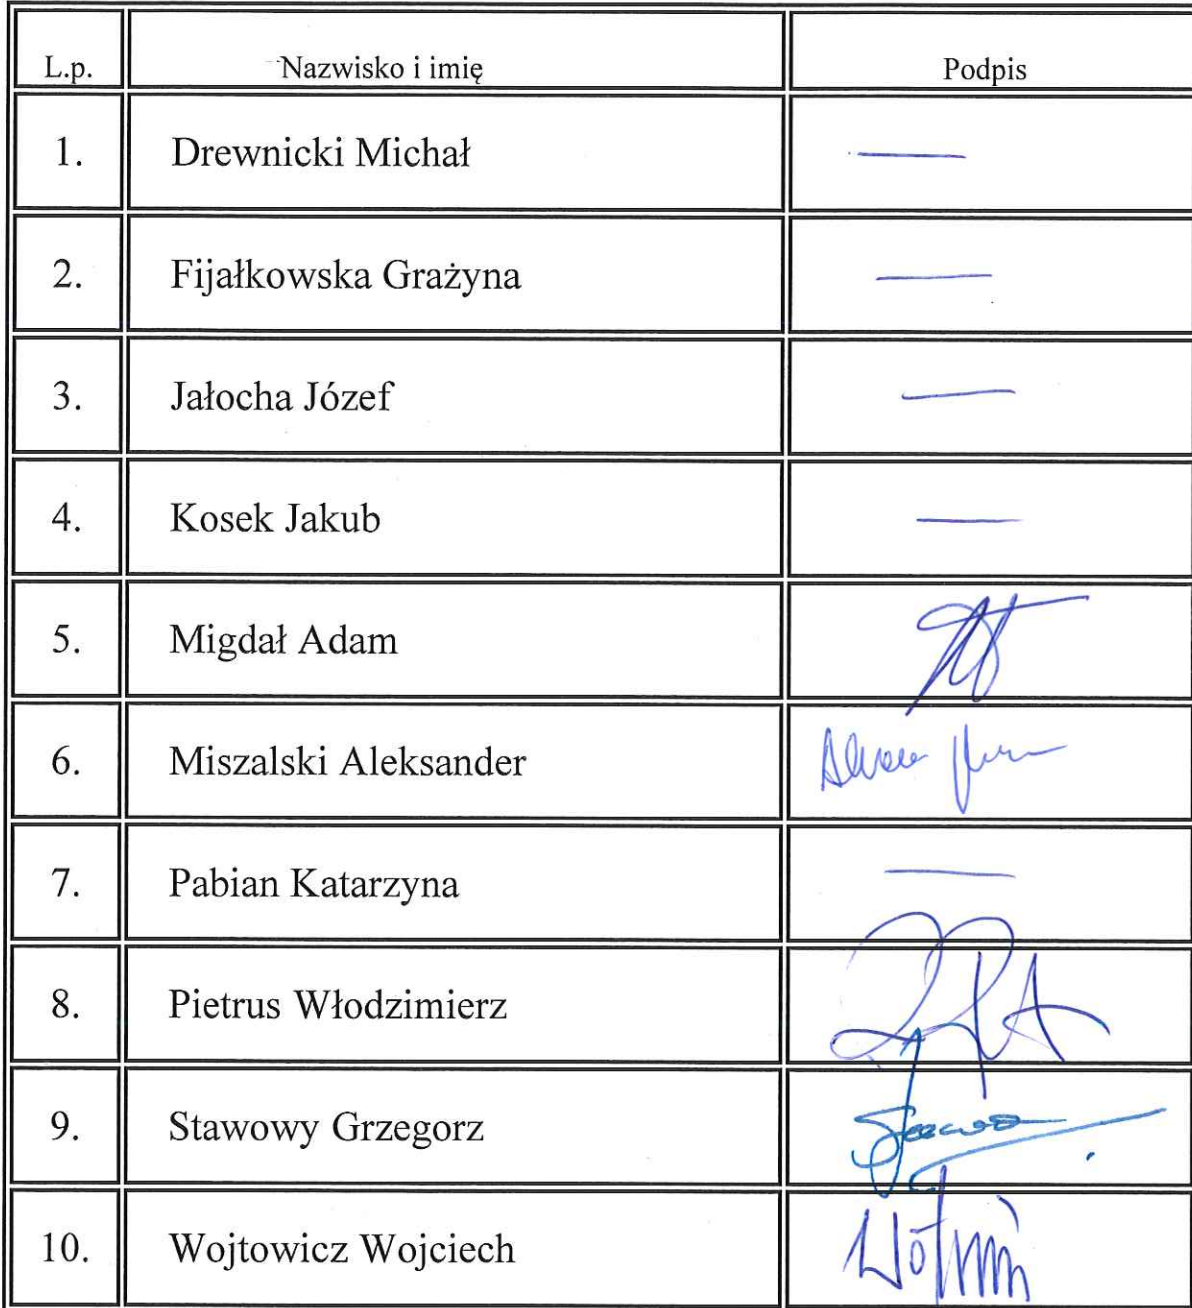 L.p. Nazwisko i imię Podpis
1. Drewnicki Michał —
2. Fijałkowska Grażyna —
3. Jałocha Józef —
4. Kosek Jakub —
5. Migdał Adam
6. Miszalski Aleksander
7. Pabian Katarzyna —
8. Pietrus Włodzimierz
9. Stawowy Grzegorz
10. Wojtowicz Wojciech